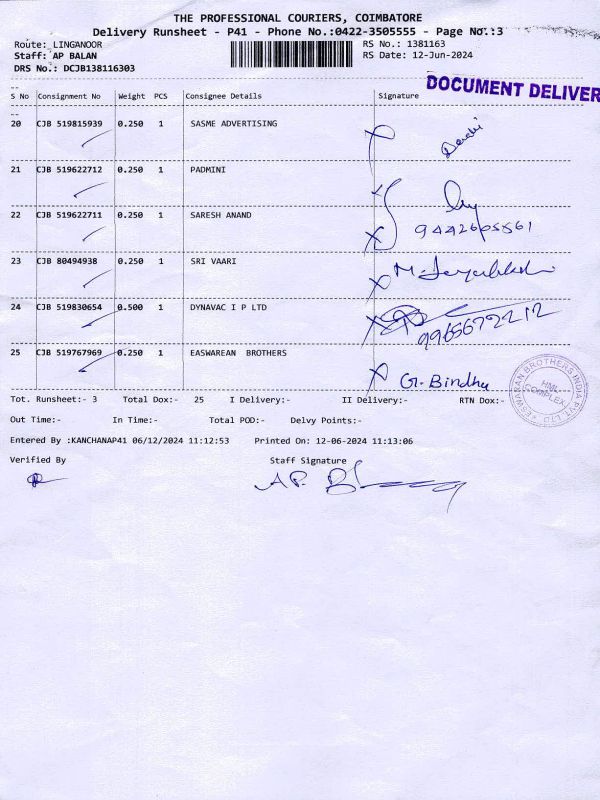 THE PROFESSIONAL COURIERS, COIMBATORE
Delivery Runsheet - P41 - Phone No.:0422-3505555 - Page No.:3
Route: LINGANOOR RS No.: 1381163
Staff: AP BALAN RS Date: 12-Jun-2024
DRS No.: DCJB138116303
DOCUMENT DELIVER
S No Consignment No Weight PCS Consignee Details Signature
20 CJB 519815939 0.250 1 SASME ADVERTISING
21 CJB 519622712 0.250 1 PADMINI
22 CJB 519622711 0.250 1 SARESH ANAND
23 CJB 80494938 0.250 1 SRI VAARI
24 CJB 519830654 0.500 1 DYNAVAC I P LTD
25 CJB 519767969 0.250 1 EASWAREAN BROTHERS
G. Bindhu
ESWARAN BROTHERS INDIA PVT. LTD
HML COMPLEX
Tot. Runsheet:- 3 Total Dox:- 25 I Delivery:- II Delivery:- RTN Dox:-
Out Time:- In Time:- Total POD:- Delvy Points:-
Entered By :KANCHANAP41 06/12/2024 11:12:53 Printed On: 12-06-2024 11:13:06
Verified By Staff Signature
A.P.